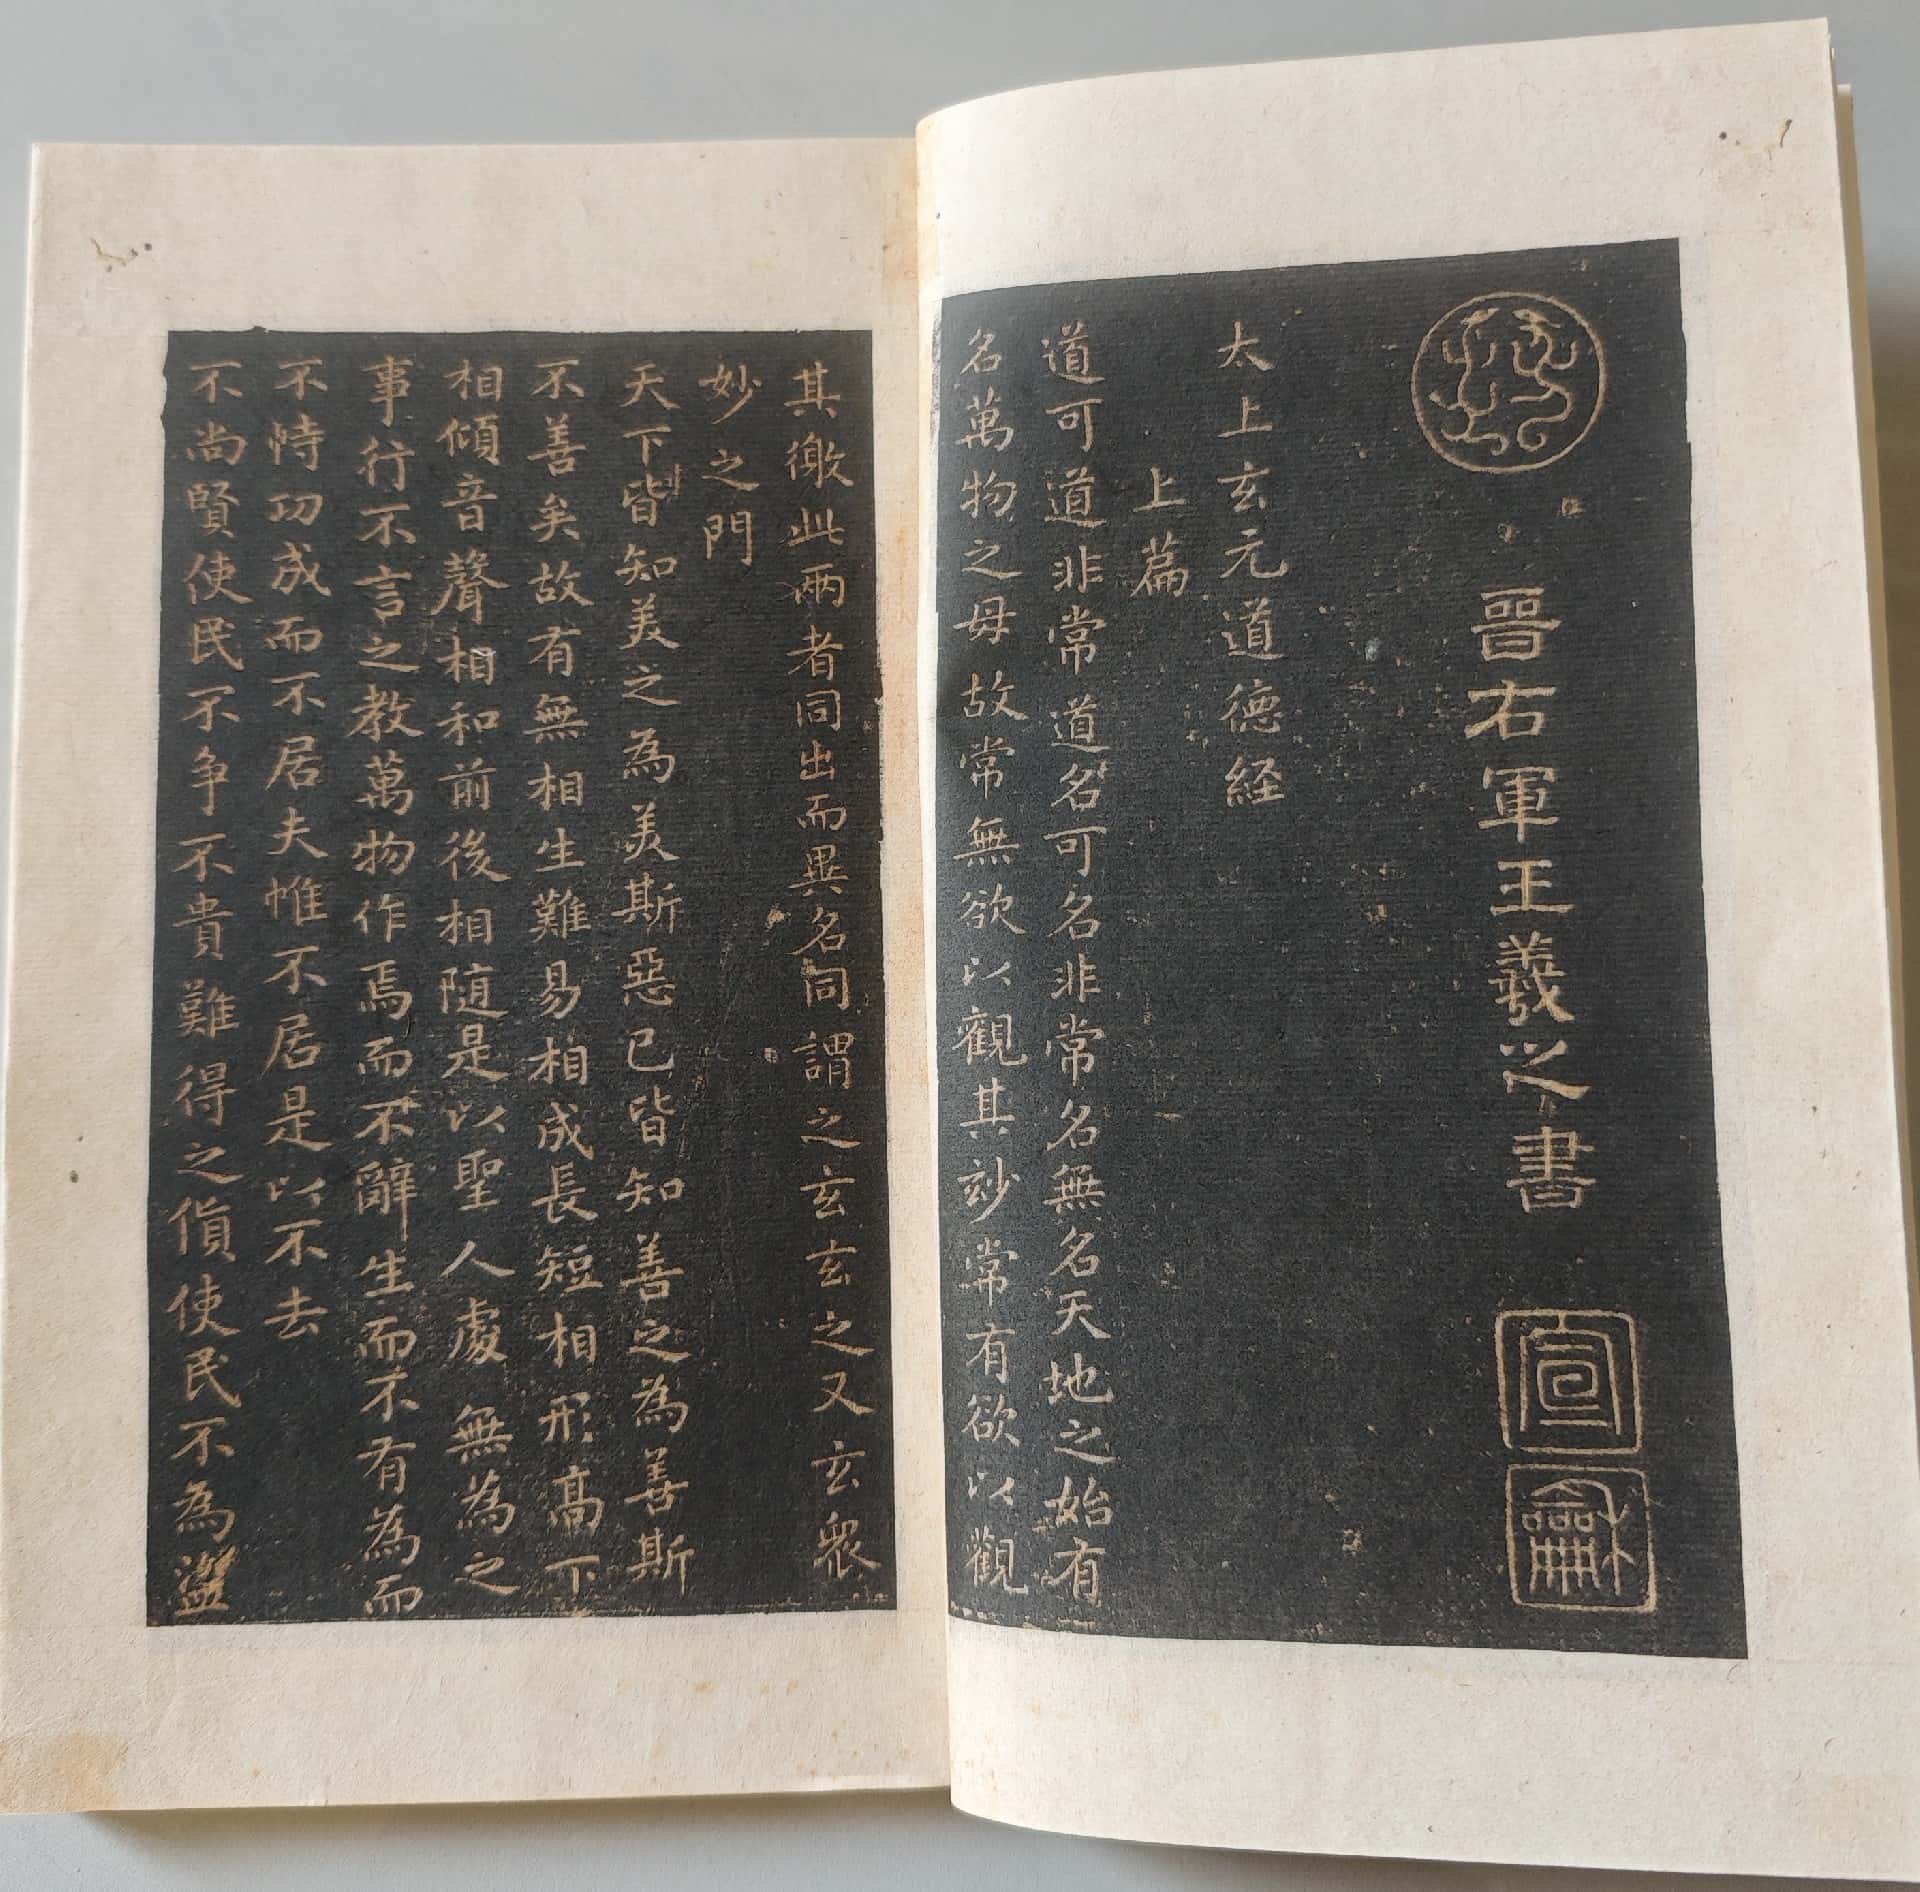 晉右軍王羲之書
宣
龢
太上玄元道德経
上篇
道可道非常道名可名非常名無名天地之始有
名萬物之母故常無欲以觀其玅常有欲以觀
其徼此兩者同出而異名同謂之玄玄之又玄衆
妙之門
天下皆知美之為美斯惡已皆知善之為善斯
不善矣故有無相生難易相成長短相形高下
相傾音聲相和前後相随是以聖人處無為之
事行不言之教萬物作焉而不辭生而不有為而
不恃功成而不居夫惟不居是以不去
不尚賢使民不争不貴難得之貨使民不為盜